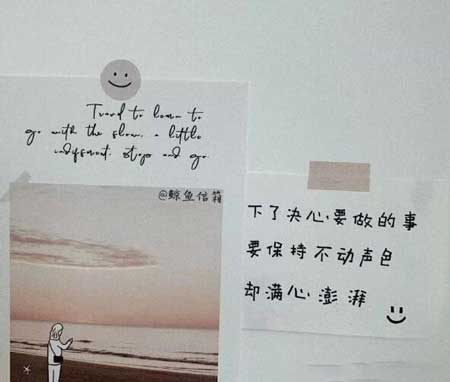 Trend to learn to
go with the slow, a little
indifferent, stops and go.
@鲸鱼信箱
下了决心要做的事
要保持不动声色
却满心澎湃